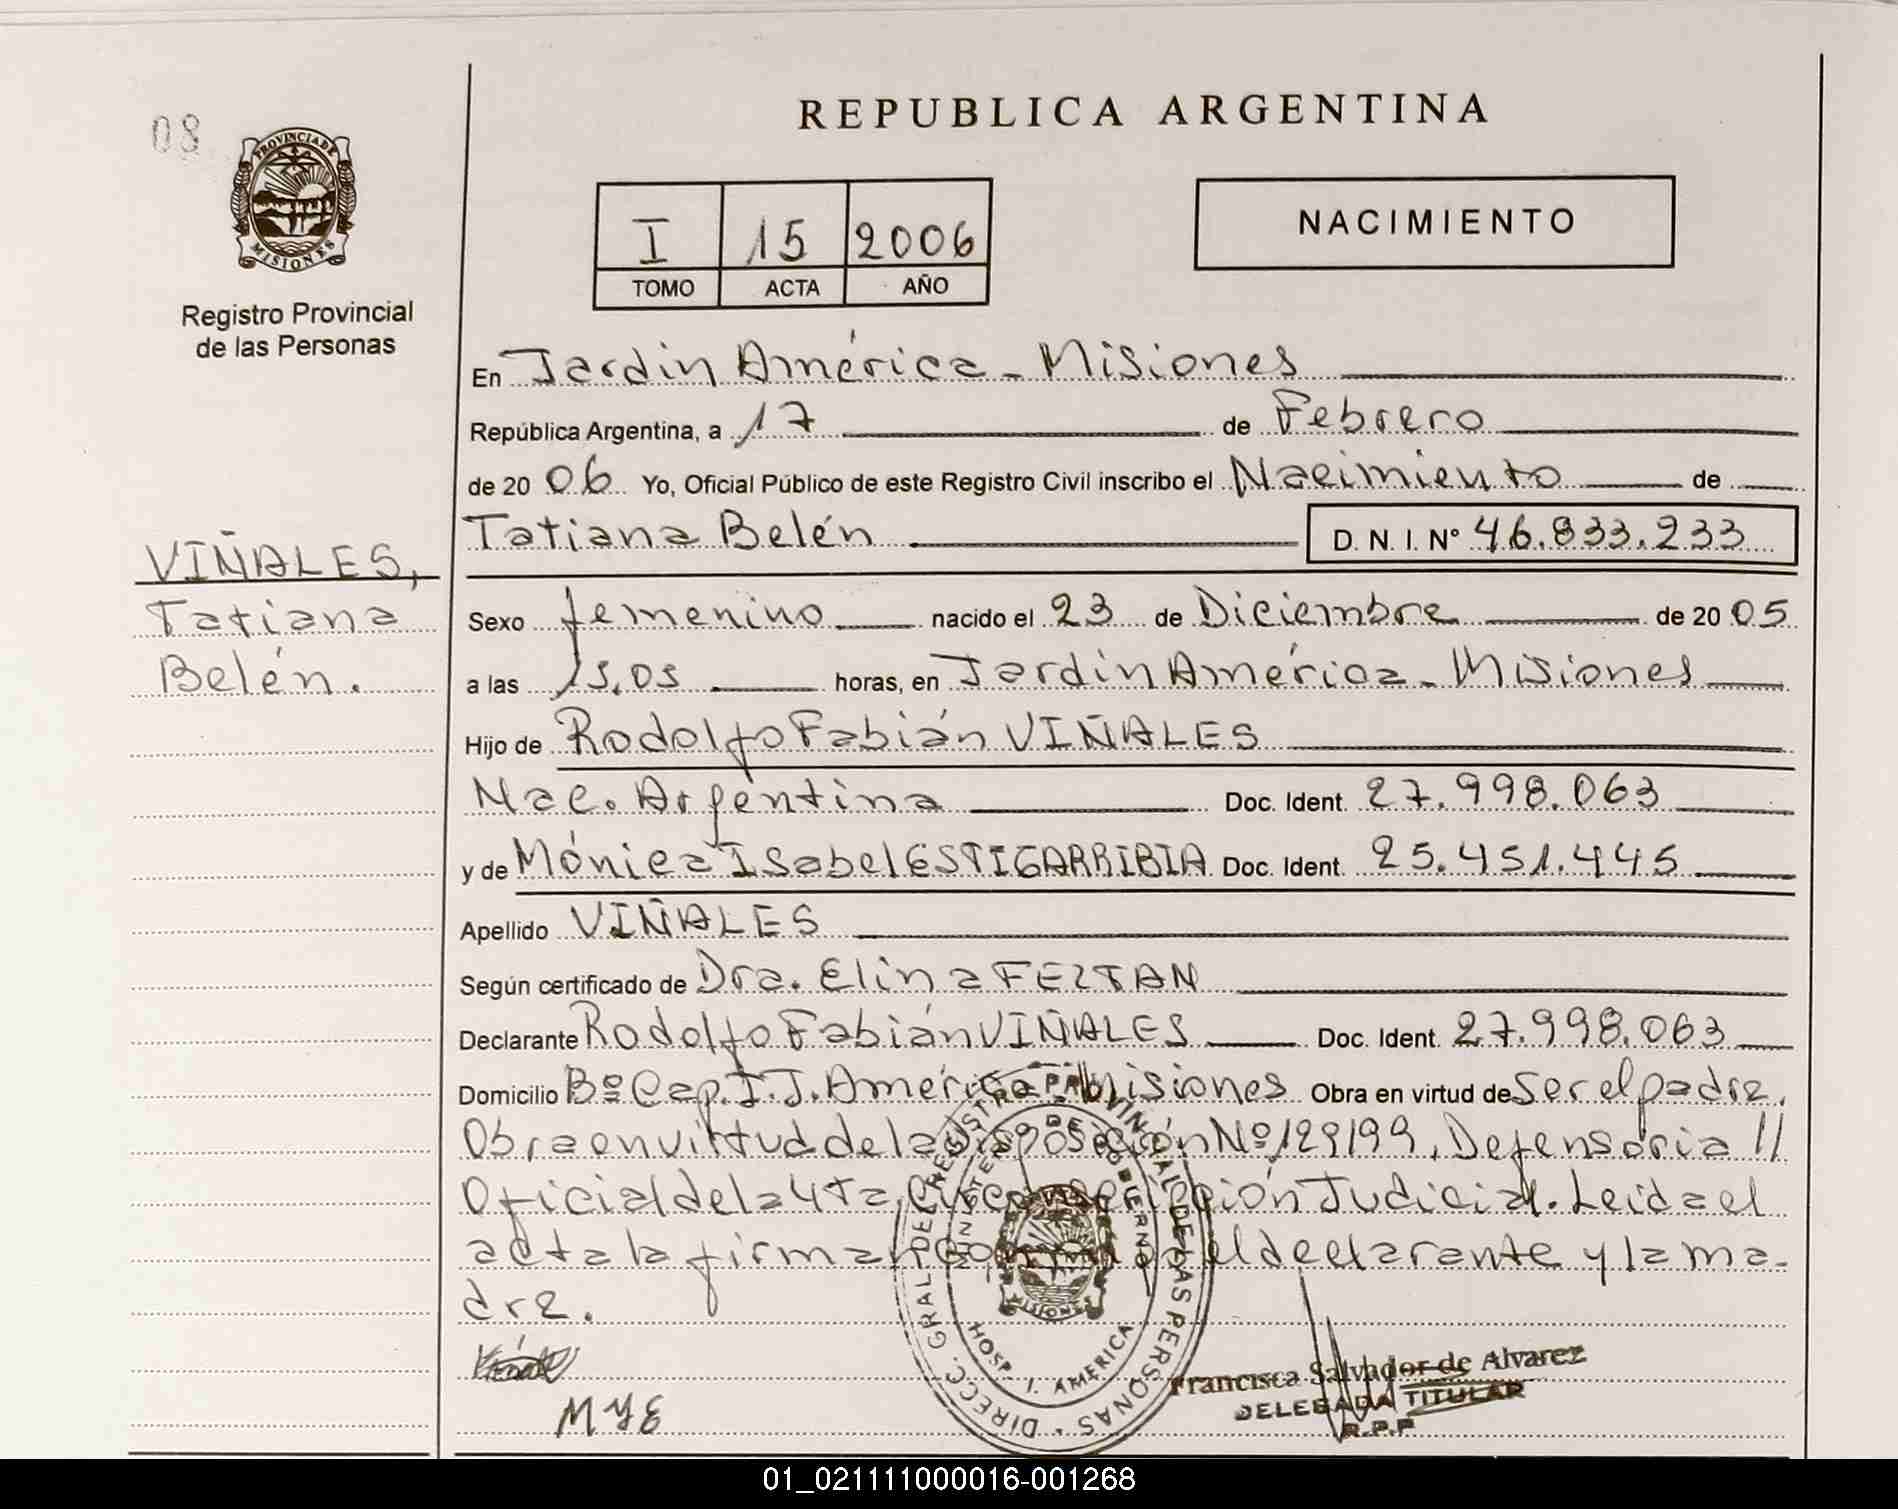 REPUBLICA ARGENTINA
08
PROVINCIA DE
MISIONES
Registro Provincial
de las Personas
I 15 2006
TOMO ACTA AÑO
NACIMIENTO
En Jardín América - Misiones
República Argentina, a 17 de Febrero
de 20 06 Yo, Oficial Público de este Registro Civil inscribo el Nacimiento de
Tatiana Belén D. N. I. Nº 46.833.233
VIÑALES,
Tatiana
Belén.
Sexo femenino nacido el 23 de Diciembre de 20 05
a las 15,05 horas, en Jardín América - Misiones
Hijo de Rodolfo Fabián VIÑALES
Nac. Argentina Doc. Ident. 27.998.063
y de Mónica Isabel ESTIGARRIBIA Doc. Ident. 25.451.445
Apellido VIÑALES
Según certificado de Dra. Elina
Declarante Rodolfo Fabián VIÑALES Doc. Ident. 27.998.063
Domicilio Bº Cap. J. J. América Misiones Obra en virtud de Ser el padre.
Obra en virtud de la Disposición Nº 129/99, Defensoría //
Oficial de la 4ta. Circunscripción Judicial. Leida el
acta la firman conmigo el declarante y la ma-
dre.
MYE
DIRECC. GRAL. DEL REGISTRO PROVINCIAL DE LAS PERSONAS
MINISTERIO DE GOBIERNO
MISIONES
HOSP. J. AMERICA
Francisca Salvador de Alvarez
DELEGADA TITULAR
R.P.P
01_021111000016-001268